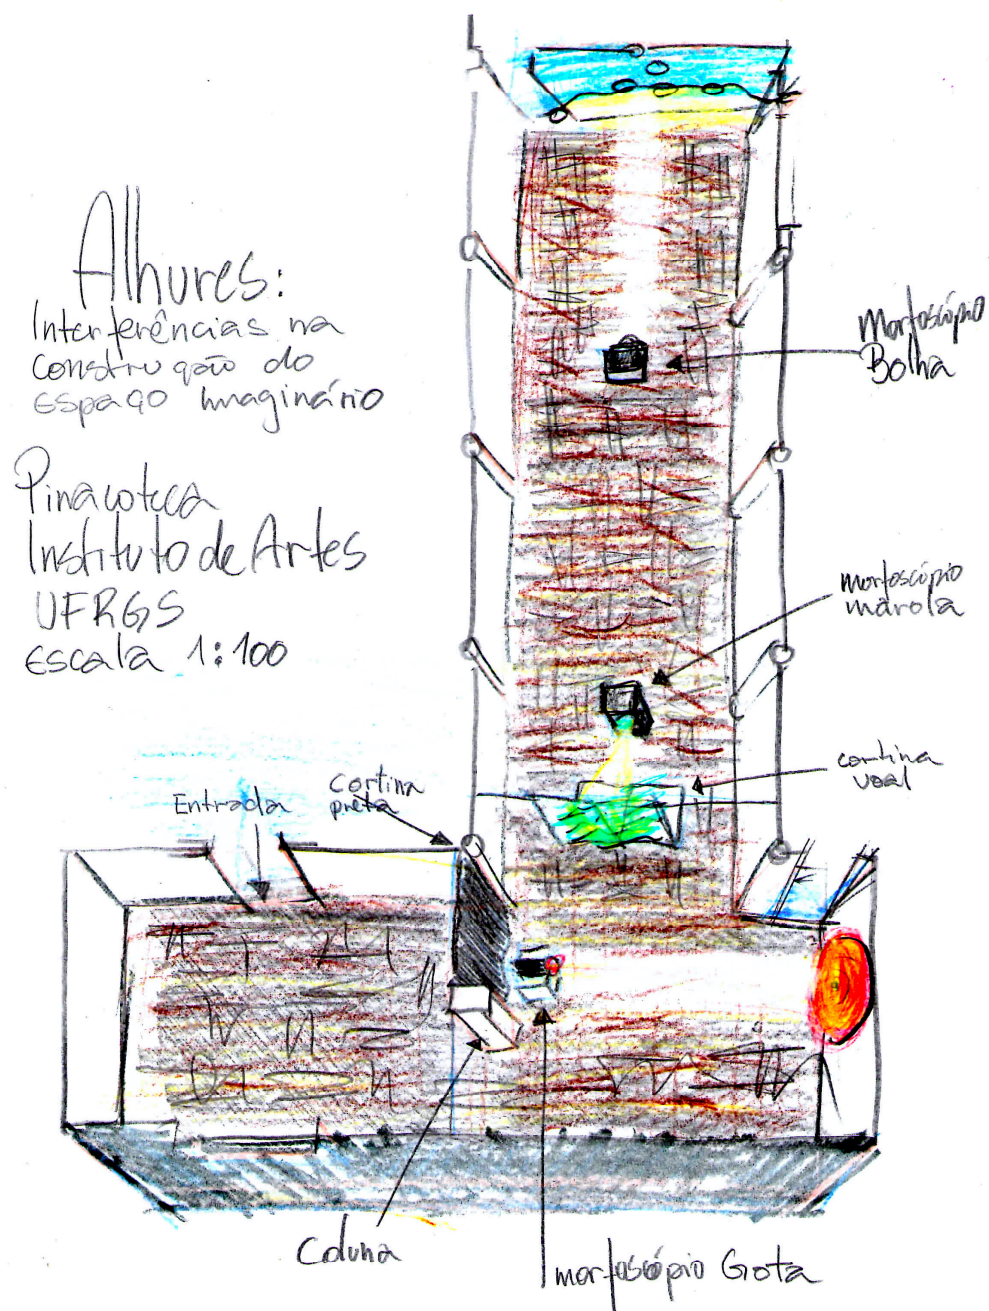 Alhures:
Interferências na
construção do
espaço imaginário
Pinacoteca
Instituto de Artes
UFRGS
escala 1:100
Morfoscópio
Bolha
morfoscópio
marola
cortina
voal
Entrada
cortina
preta
Coluna
morfoscópio Gota